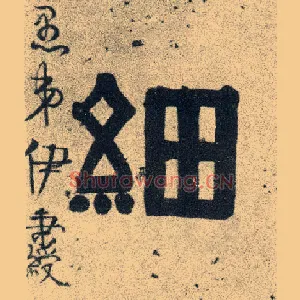 細
愚弟伊秉綬
Shufawang.CN